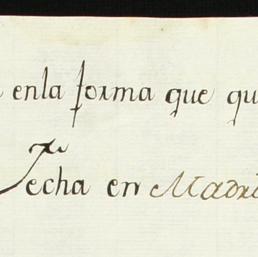 enla forma que qu
Fecha en Madri